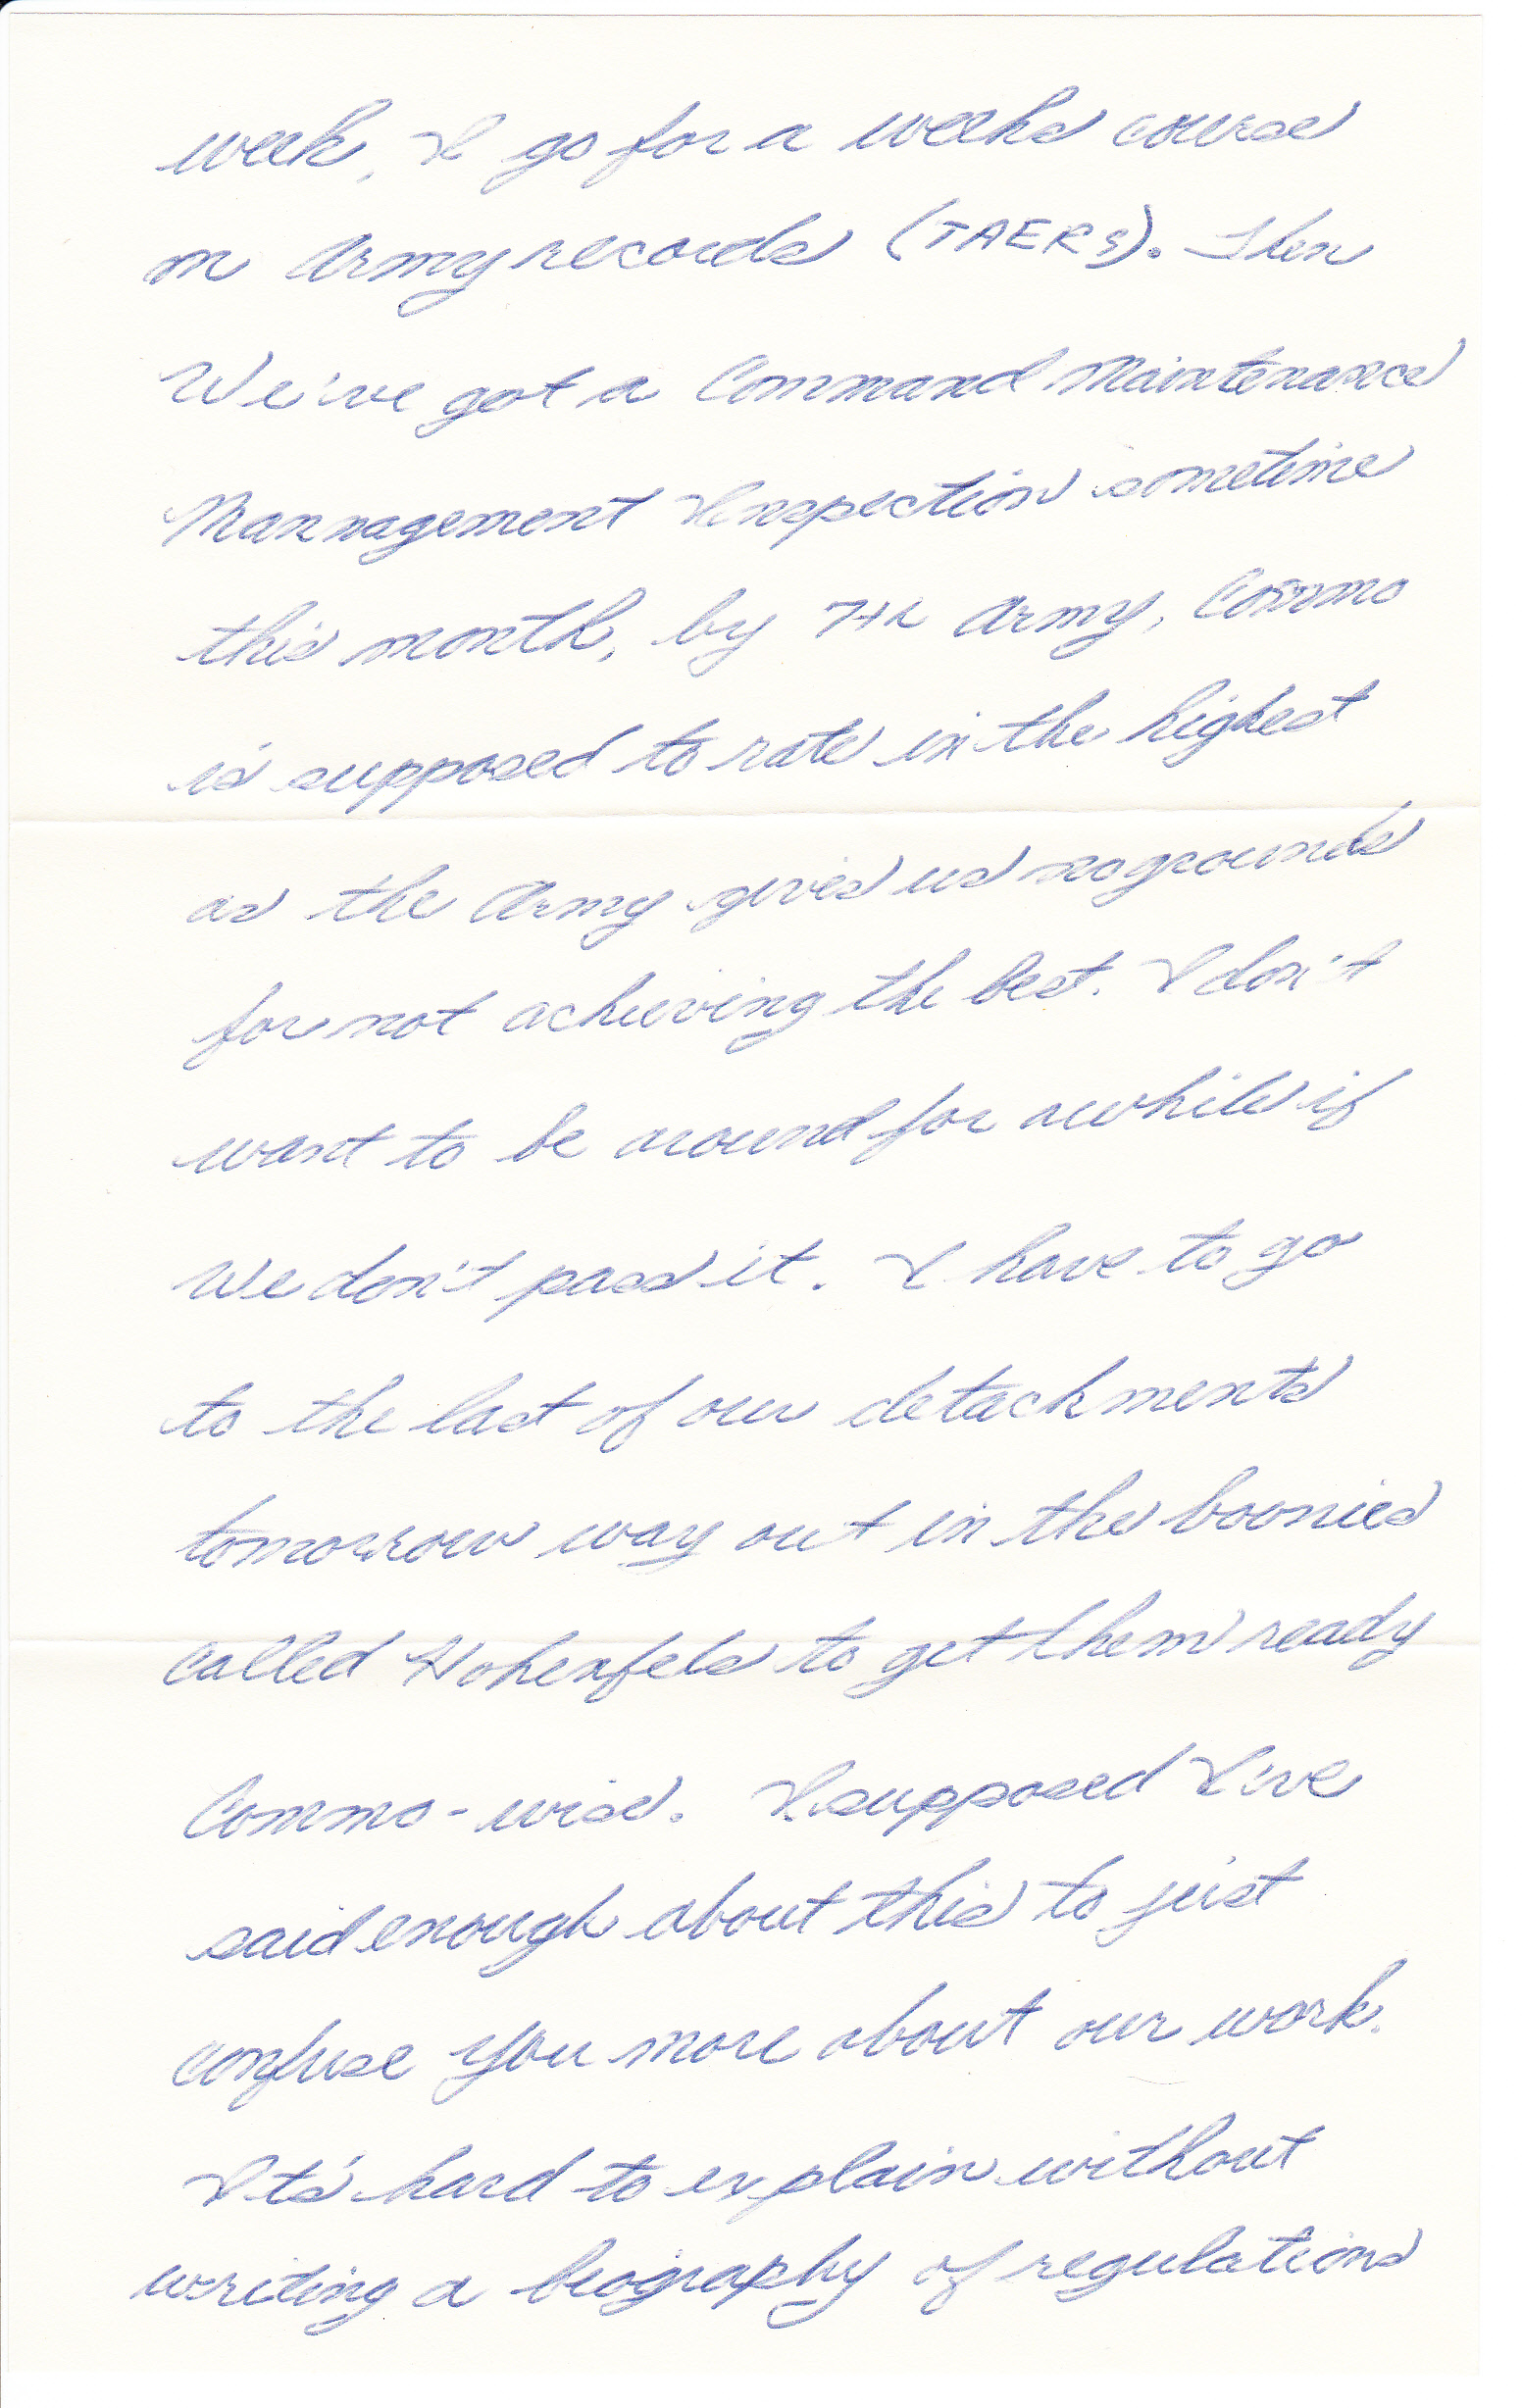 week, I go for a weeks course
on Army records (TAERS). Then
We've got a Command Maintenance
Mannagement Inspection sometime
this month, by 7th Army, Commo
is supposed to rate in the highest
as the Army gives us no grounds
for not achieving the best. I don't
want to be around for awhile if
We don't pass it. I have to go
to the last of our detachments
tomorrow way out in the boonies
called Hohenfels to get them ready
Commo-wise. I supposed I've
said enough about this to just
confuse you more about our work.
Its hard to explain without
writing a biography of regulations